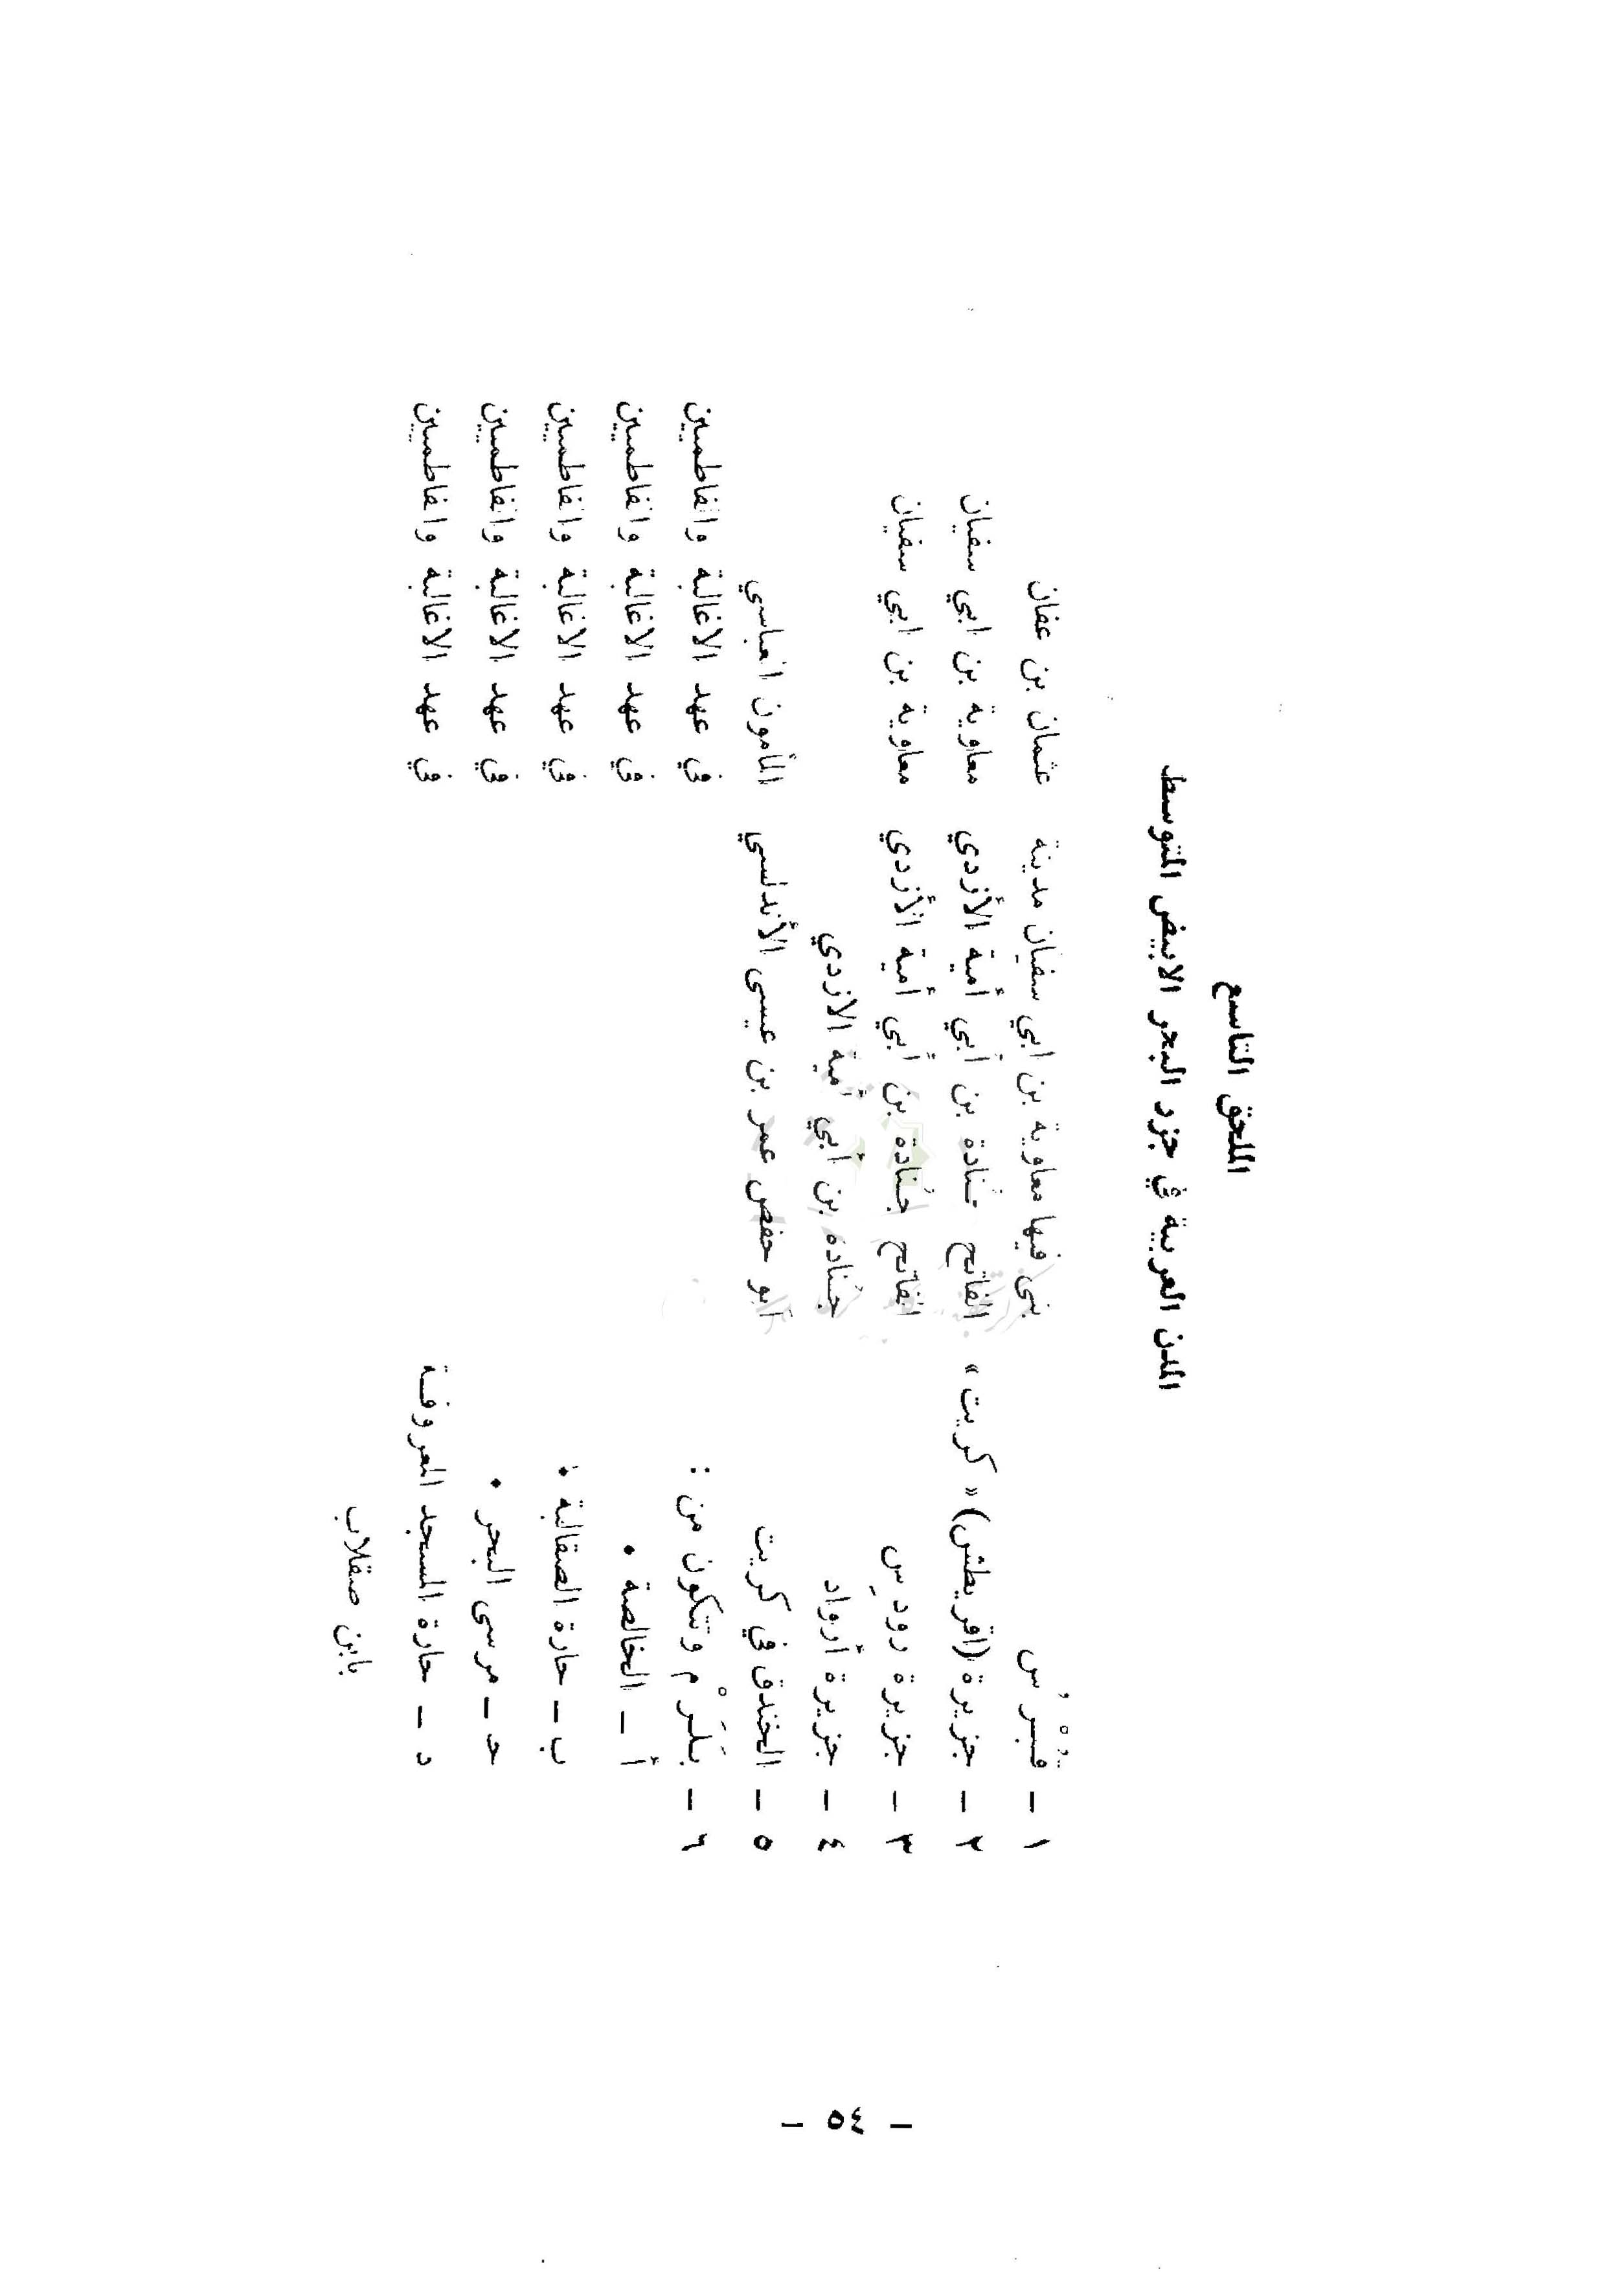 الملحق التاسع
المدن العربية في جزر البحر الابيض المتوسط
١ – قُبْرُس بنى فيها معاوية بن ابي سفيان مدينة عثمان بن عفان
٢ – جزيرة (اقريطش) «كريت» الفاتح جُنادة بن أبي أمية الأزدي معاوية بن ابي سفيان
٣ – جزيرة رودِس الفاتح جُنادة بن أبي أمية الأزدي معاوية بن ابي سفيان
٤ – جزيرة أرواد جُنادة بن أبي أمية الازدي
٥ – الخندق في كريت أبو حفص عمر بن عيسى الأندلسي المأمون العباسي
٦ – بَلَرْم وتتكون من : في عهد الاغالبة والفاطميين
أ – الخالصة . في عهد الاغالبة والفاطميين
ب – حارة الصقالبة . في عهد الاغالبة والفاطميين
حـ – مرسى البحر . في عهد الاغالبة والفاطميين
د – حارة المسجد المعروفة في عهد الاغالبة والفاطميين
بابن صقلاب
– ٥٤ –